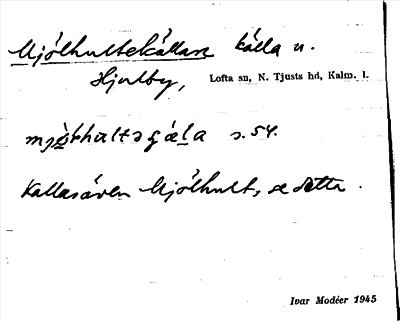 Mjölhultekällan källa n.
Hjulby,
Lofta sn, N. Tjusts hd, Kalm. l.
s. 54.
Kallas även Mjölhult, se detta.
Ivar Modéer 1945